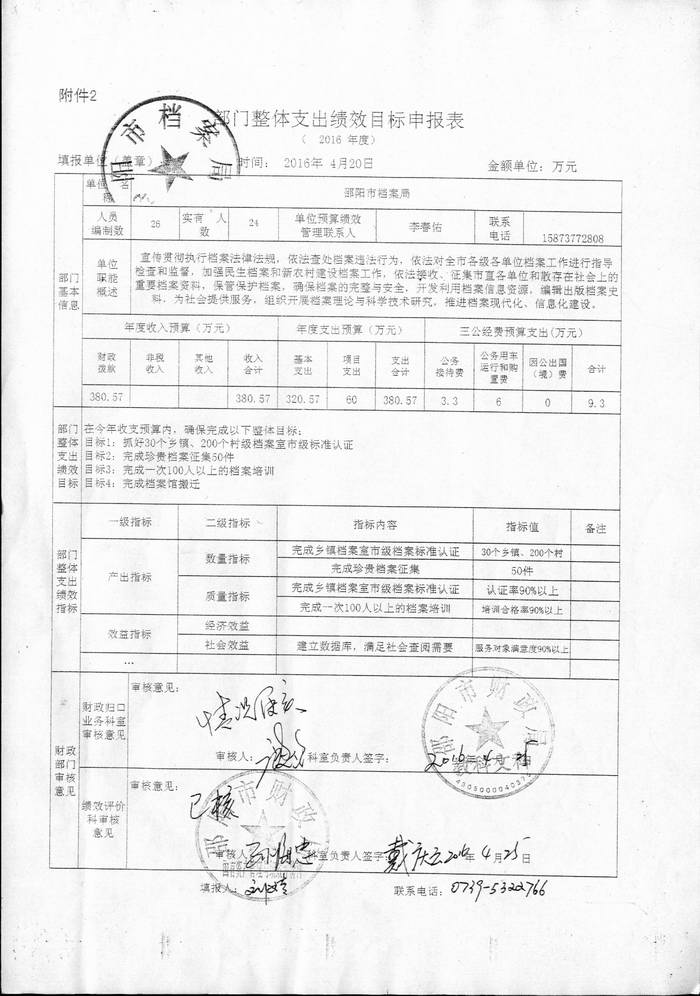 附件2
部门整体支出绩效目标申报表
（ 2016 年度）
填报单位（盖章） 时间： 2016年 4月20日 金额单位：万元
邵阳市档案局
部门基本信息
单位名称 邵阳市档案局
人员编制数 26 实有人数 24 单位预算绩效管理联系人 李春佑 联系电话 15873772808
单位职能概述
宣传贯彻执行档案法律法规，依法查处档案违法行为，依法对全市各级各单位档案工作进行指导
检查和监督，加强民生档案和新农村建设档案工作，依法接收、征集市直各单位和散存在社会上的
重要档案资料，保管保护档案，确保档案的完整与安全，开发利用档案信息资源，编辑出版档案史
料，为社会提供服务，组织开展档案理论与科学技术研究，推进档案现代化、信息化建设。
年度收入预算（万元） 年度支出预算（万元） 三公经费预算支出（万元）
财政拨款 非税收入 其他收入 收入合计 基本支出 项目支出 支出合计 公务接待费 公务用车运行和购置费 因公出国（境）费 合计
380.57 380.57 320.57 60 380.57 3.3 6 0 9.3
部门整体支出绩效目标
在今年收支预算内，确保完成以下整体目标：
目标1：抓好30个乡镇、200个村级档案室市级标准认证
目标2：完成珍贵档案征集50件
目标3：完成一次100人以上的档案培训
目标4：完成档案馆搬迁
部门整体支出绩效指标
一级指标 二级指标 指标内容 指标值 备注
产出指标 数量指标 完成乡镇档案室市级档案标准认证 30个乡镇、200个村
完成珍贵档案征集 50件
质量指标 完成乡镇档案室市级档案标准认证 认证率90%以上
完成一次100人以上的档案培训 培训合格率90%以上
效益指标 经济效益
社会效益 建立数据库，满足社会查阅需要 服务对象满意度90%以上
…
财政部门审核意见
财政归口业务科室审核意见
审核意见：
情况属实
审核人： 科室负责人签字： 2016年4月 日
邵阳市财政局
教科文科
绩效评价科审核意见
审核意见：
已核
审核人： 科室负责人签字： 戴庆云 2016年4月25日
邵阳市财政局
填报人： 联系电话：0739-5322766